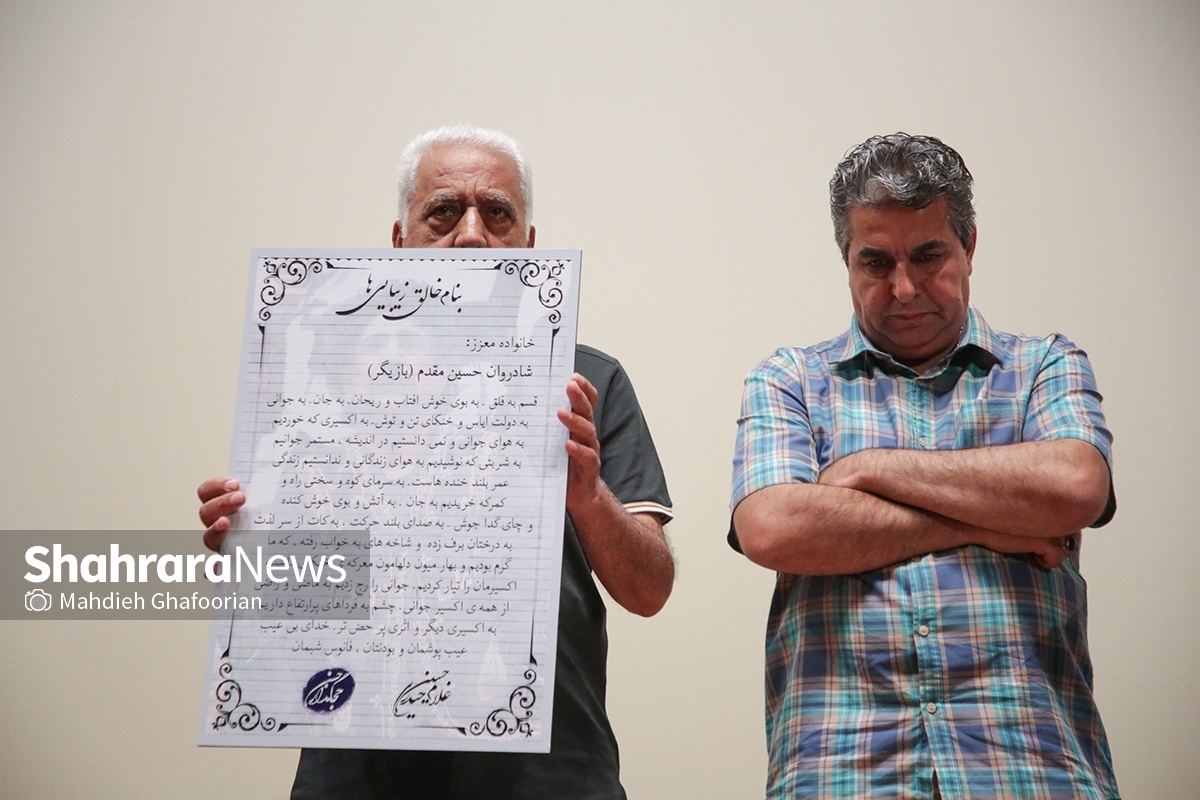 بنام خالق زیبایی‌ها
خانواده معزز:
شادروان حسین مقدم (بازیگر)
قسم به فلق . به بوی خوش افتاب و ریحان. به جان. به جوانی
به دولت ایاس و خنکای تن و توش. به اکسیری که خوردیم
به هوای جوانی و نمی دانستیم در اندیشه ، مستمر جوانیم
به شربتی که نوشیدیم به هوای زندگانی و ندانستیم زندگی
عمر بلند خنده هاست. به سرمای کوه و سختی راه و
کمرکه خریدیم به جان . به آتش و بوی خوش کنده
و چای گدا جوش . به صدای بلند حرکت ، به کات از سر لذت
به درختان برف زده و شاخه های به خواب رفته ، که ما
گرم بودیم و بهار میون دلهامون معرکه
اکسیرمان را تیار کردیم. جوانی را رج زدیم به ماضی و
از همه ی اکسیر جوانی. چشم به فرداهای پرارتفاع داریم
به اکسیری دیگر و اثری پر حض تر. خدای بی عیب
عیب پوشمان و بودنتان ، فانوس شبمان
ShahraraNews
Mahdieh Ghafoorian